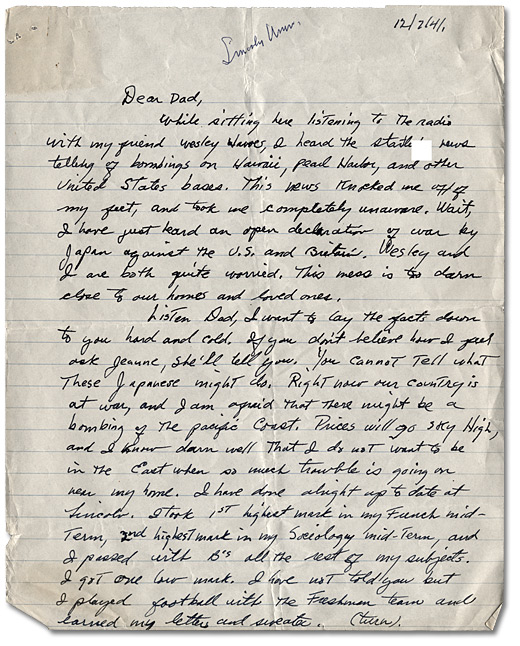 12/7/41
Lincoln Univ.
Dear Dad,
While sitting here listening to the radio
with my friend Wesley, I heard the news
telling of bombings on Hawaii, pearl Harbor, and other
United States bases. This news knocked me off of
my feet, and took me completely unaware. Wait,
I have just heard an open declaration of war by
Japan against the U.S. and Britain. Wesley and
I are both quite worried. This mess is to darn
close to our homes and loved ones.
Listen Dad, I want to lay the facts down
to you hard and cold. If you don't believe how I feel
ask Jeanne, she'll tell you. You cannot tell what
These Japanese might do. Right now our country is
at war, and I am afraid that there might be a
bombing of the pacific Coast. Prices will go sky High,
and I know darn well That I do not want to be
in the East when so much trouble is going on
near my home. I have done alright up to date at
Lincoln. I took 1st highest mark in my French mid-
Term, 2nd highest mark in my Sociology mid-Term, and
I passed with B's all the rest of my subjects.
I got one low mark. I have not told you but
I played football with the Freshman team and
earned my letter and sweater. (turn).